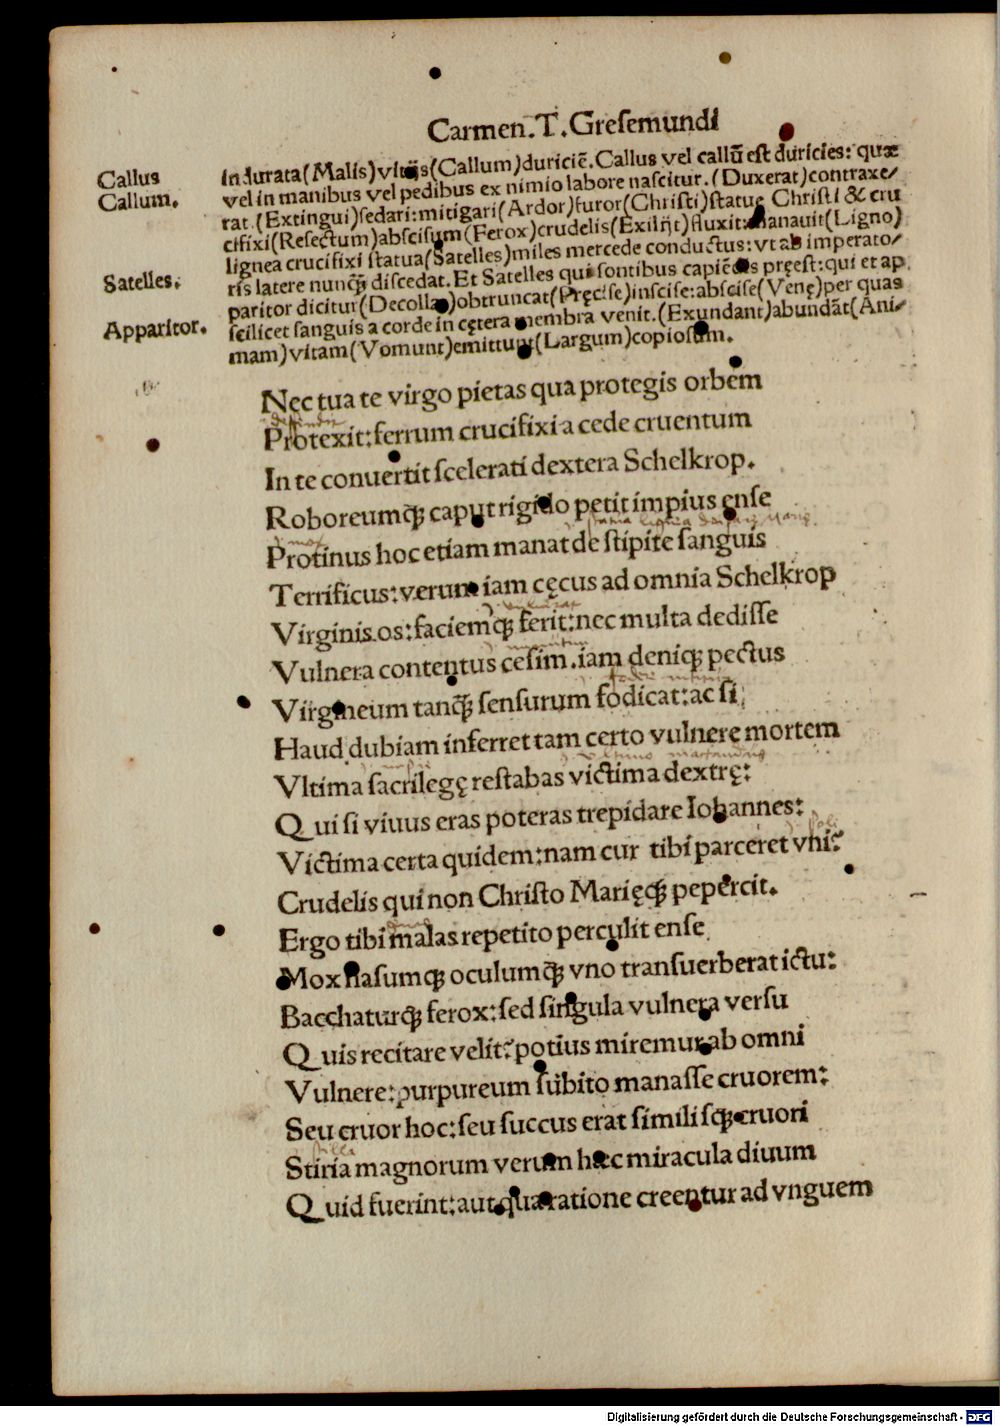 Carmen.T.Gresemundi
Callus
Callum.
Indurata(Malis)vitijs(Callum)duriciē.Callus vel callū est duricies: quæ
vel in manibus vel pedibus ex nimio labore nascitur.(Duxerat)contraxe/
rat.(Extingui)sedari:mitigari(Ardor)furor(Christi)statuę Christi & cru
cifixi(Resectum)abscisum(Ferox)crudelis(Exilijt)fluxit:manauit(Ligno)
lignea crucifixi statua(Satelles)miles mercede conductus:vt ab imperato/
Satelles.
ris latere nunqȝ discedat.Et Satelles qui sontibus capiēdis pręest:qui et ap
paritor dicitur(Decollat)obtruncat(Pręcise)inscise:abscise(Venę)per quas
Apparitor.
scilicet sanguis a corde in cętera membra venit.(Exundant)abundāt(Ani/
mam)vitam(Vomunt)emittunt(Largum)copiosum.
Nec tua te virgo pietas qua protegis orbem
Protexit:ferrum crucifixi a cede cruentum
In te conuertit scelerati dextera Schelkrop.
Roboreumqȝ caput rigido petit impius ense
Protinus hoc etiam manat de stipite sanguis
Terrificus:verum iam cęcus ad omnia Schelkrop
Virginis os:faciemqȝ ferit:nec multa dedisse
Vulnera contentus cesim.iam deniqȝ pectus
Virgineum tanqȝ sensurum fodicat:ac si
Haud dubiam inferret tam certo vulnere mortem
Vltima sacrilegę restabas victima dextrę:
Qui si viuus eras poteras trepidare Iohannes:
Victima certa quidem:nam cur tibi parceret vni?
Crudelis qui non Christo Marięqȝ pepercit.
Ergo tibi malas repetito perculit ense
Mox nasumqȝ oculumqȝ vno transuerberat ictu:
Bacchaturqȝ ferox:sed singula vulnera versu
Quis recitare velit?potius miremur ab omni
Vulnere:purpureum subito manasse cruorem:
Seu cruor hoc:seu succus erat similisqȝ cruori
Stiria magnorum verum hæc miracula diuum
Quid fuerint:aut qua ratione creentur ad vnguem
Digitalisierung gefördert durch die Deutsche Forschungsgemeinschaft - DFG